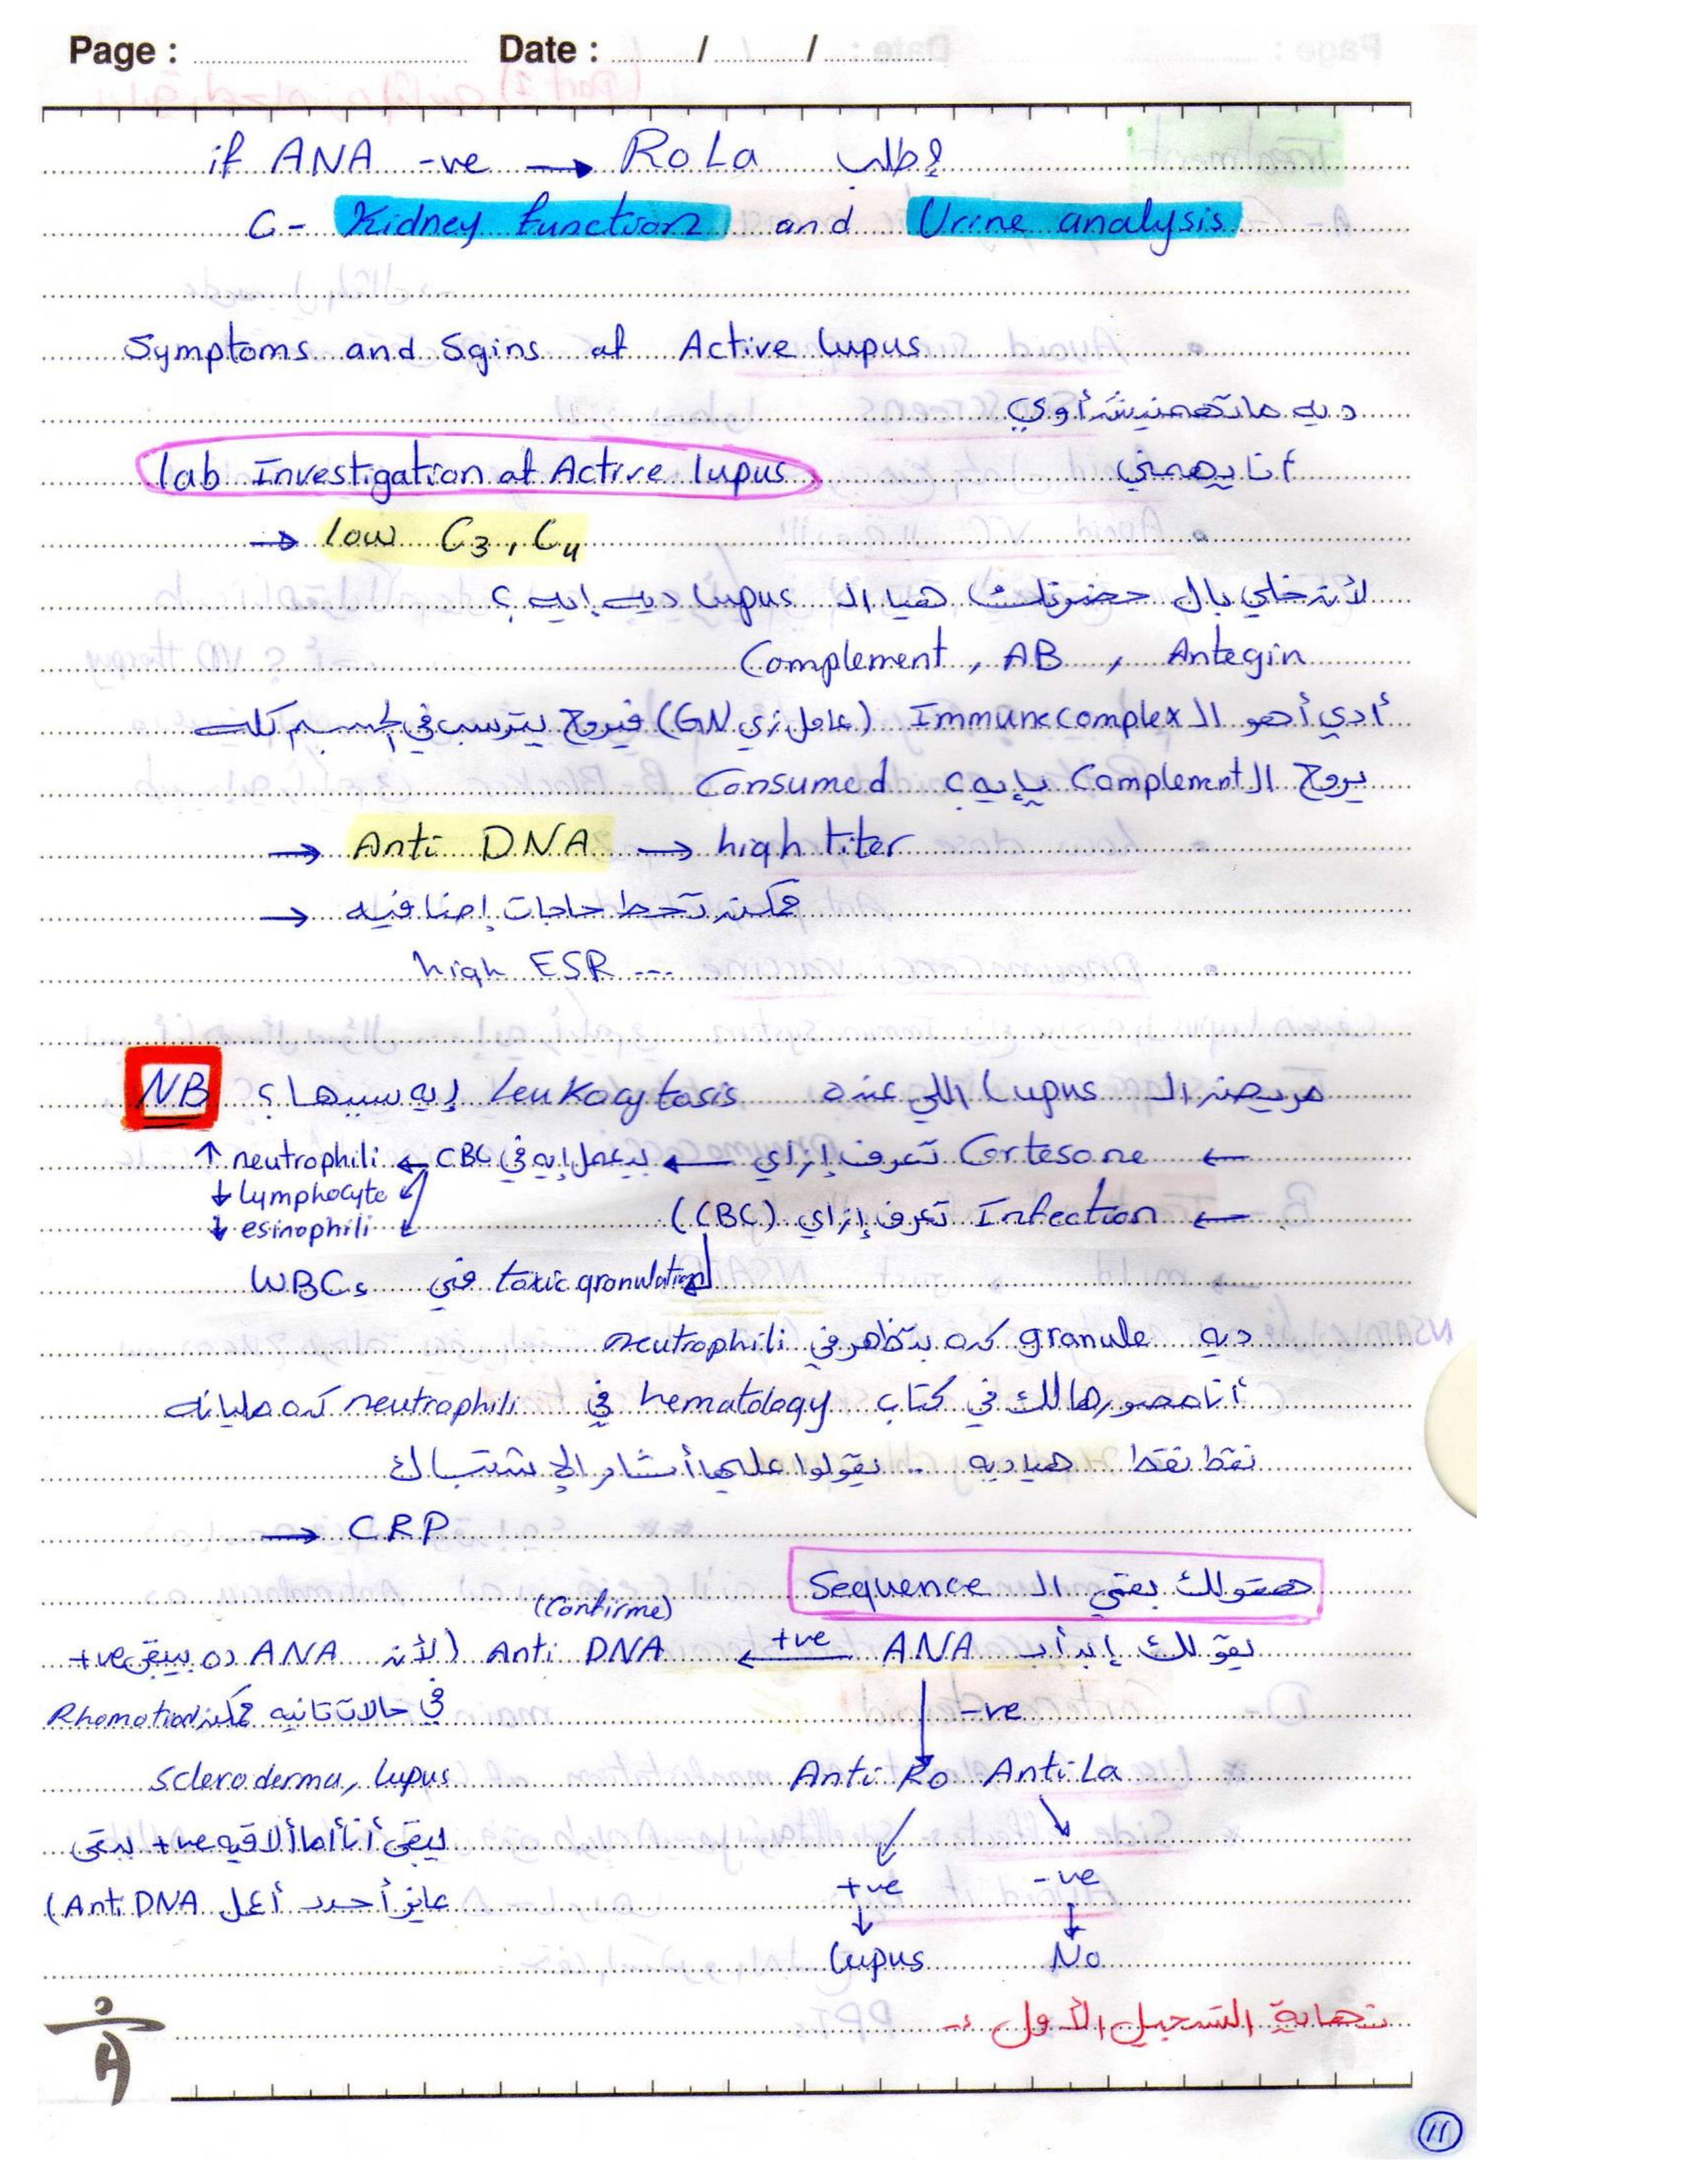 Page : Date : / /
if ANA -ve → RoLa هطلب
C- Kidney function and Urine analysis
Symptoms and Sgins of Active lupus
ديه ماتهمنيش أوي
lab Investigation of Active lupus أنا يهمني
→ low C3, C4
لأن خلي بال حضرتك هيا ال lupus ديه إيه ؟
Complement , AB , Antegin
أدي أهو ال Immunecomplex (عامل زي GN) فيروح يترسب في الجسم كله
يروح ال Complement يإيه ؟ Consumed
→ Anti DNA → high titer
→ ممكن تحط حاجات إضافيه
high ESR ---
NB مريض ال Lupus اللي عنده Leukocytosis إيه سببها ؟
← Cortesone تعرف إزاي ← بيعمل إيه في CBC ← neutrophili ↑
↓ lymphocyte
← Infection تعرف إزاي (CBC)
↓ esinophili
toxic granulation في WBCs
ديه granule كده بتظهر في neutrophili
أنا مصورهالك في كتاب hematology في neutrophili كده مليانه
نقط نقط هيا ديه .. يقولوا عليها أثار الإشتباك
→ CRP
هقولك بقي ال Sequence
(Confirme)
يقولك إبدأ ب ANA +ve ← Anti DNA (لأن ANA ده بيبقي +ve
في حالات تانيه ممكن Rhomotiod
-ve
Scleroderma, lupus
Anti Ro Anti La
يبقي أنا أما ألاقيه +ve يبقي
عايز أحدد أعمل Anti DNA)
+ve -ve
↓ ↓
lupus No
نهاية التسجيل الأول :-
11